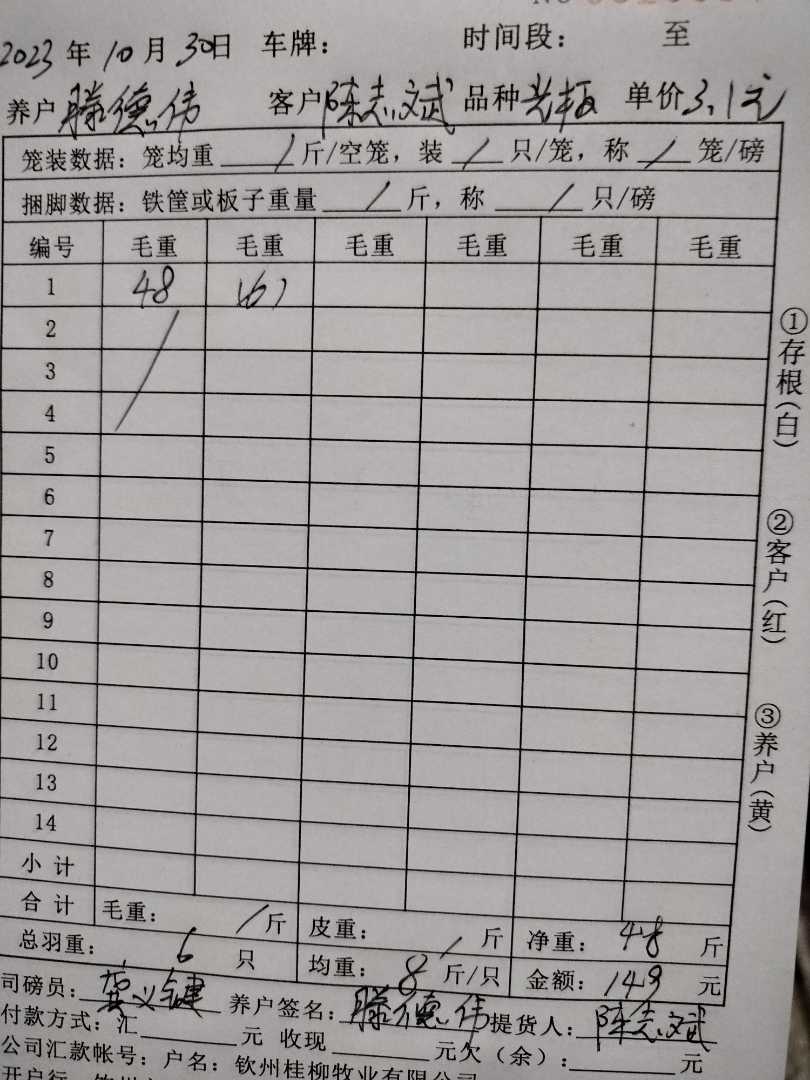 2023年10月30日 车牌： 时间段： 至
养户 滕德伟 客户 陈志斌 品种 单价 3.1元
笼装数据：笼均重 / 斤/空笼，装 / 只/笼，称 / 笼/磅
捆脚数据：铁筐或板子重量 / 斤，称 / 只/磅
编号 毛重 毛重 毛重 毛重 毛重 毛重
1 48 (6)
2
3
4
5
6
7
8
9
10
11
12
13
14
小计
合计 毛重： / 斤 皮重： / 斤 净重：48 斤
总羽重：6 只 均重：8 斤/只 金额：149 元
司磅员：龚义键 养户签名：滕德伟 提货人：陈志斌
付款方式：汇 元 收现 元欠（余）： 元
公司汇款帐号：户名：钦州桂柳牧业有限公司
开户行
①存根(白)
②客户(红)
③养户(黄)